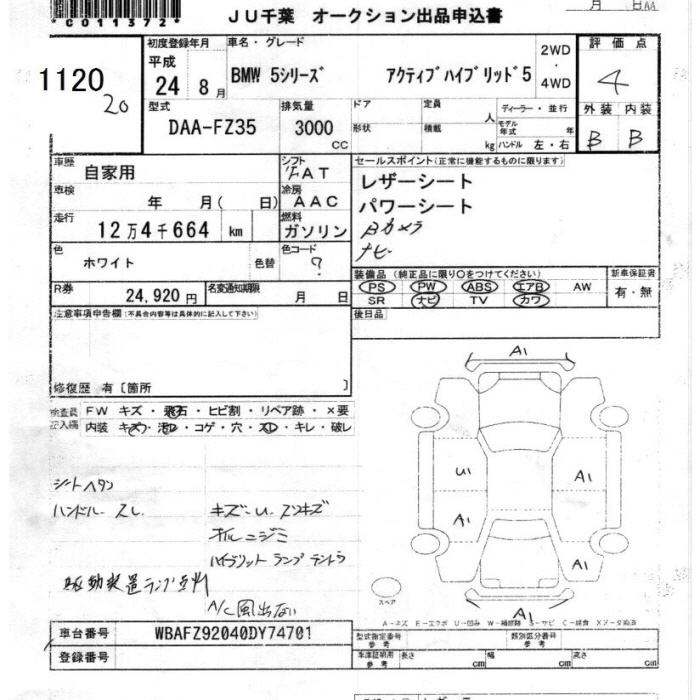 *C011372*
月 日AA
JU千葉 オークション出品申込書
1120
20
初度登録年月
平成
24 8月
車名・グレード
BMW 5シリーズ アクティブハイブリッド5
2WD
・
4WD
評価点
4
型式
DAA-FZ35
排気量
3000
CC
ドア
形状
定員
人
積載
kg
ディーラー・並行
モデル年式 年
ハンドル 左・右
外装 内装
B B
車歴
自家用
シフト
FAT
セールスポイント(正常に機能するものに限ります)
レザーシート
パワーシート
Bカメラ
ナビ
車検
年 月( 日)
冷房
AAC
走行
12万4千664 km
燃料
ガソリン
色
ホワイト
色替
色コード
?
装備品 (純正品に限り○をつけてください)
PS PW ABS エアB AW
SR ナビ TV カワ
新車保証書
有・無
R券
24,920円
名変通知期限
月 日
後日品
注意事項申告欄(不具合内容等は具体的に記入して下さい)
修復歴 有〔箇所 〕
検査員
記入欄
FW キズ・飛石・ヒビ割・リペア跡・×要
内装 キズ・汚れ・コゲ・穴・スレ・キレ・破レ
シートヘタリ
ハンドルスレ
キズ・U・スリキズ
ハイブリットランプテントウ
駆動装置ランプ点灯
A/C風出ない
A1
U1
A1
A1
A1
A1
スペア
A-キズ E-エクボ U-凹み W-補修跡 S-サビ C-腐食 X-要交換
車台番号
WBAFZ92040DY74701
登録番号
型式指定番号
参考
類別区分番号
参考
車庫証明用
参考
長さ cm
幅 cm
高さ cm